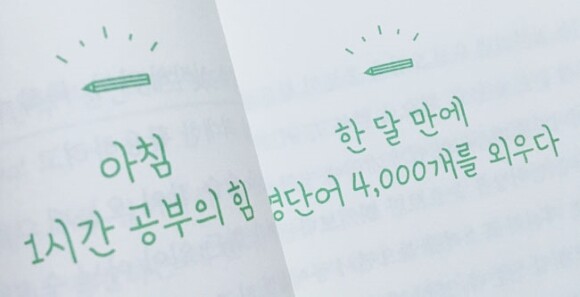 아침
1시간 공부의 힘
한 달 만에
영단어 4,000개를 외우다